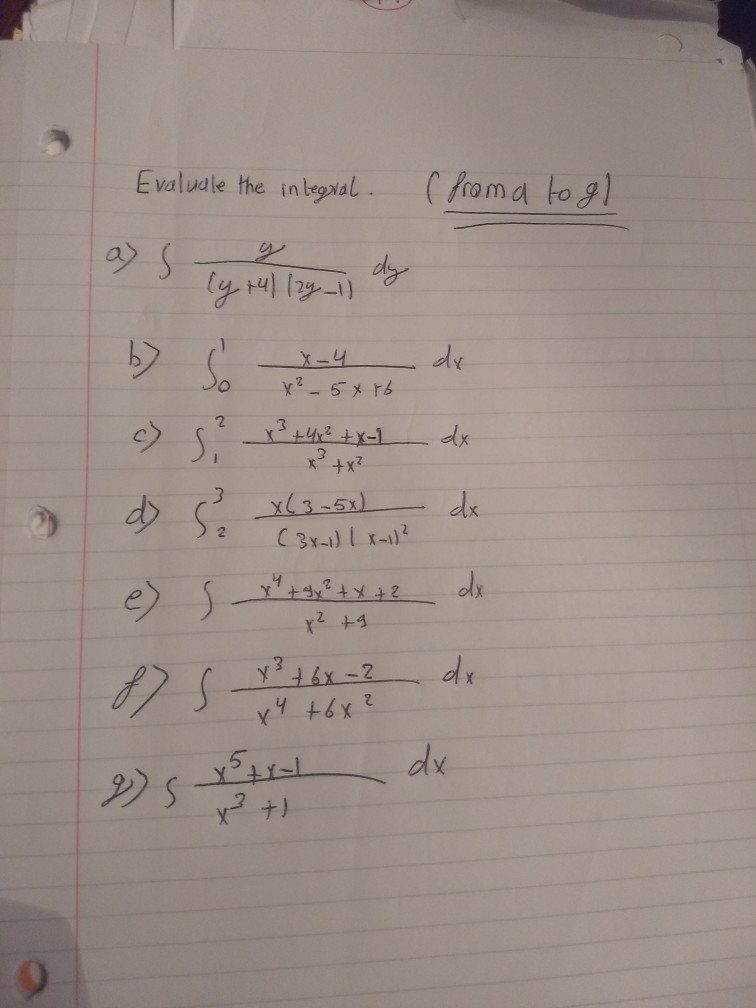 Evaluate the integral. (from a to g)
a) ∫ y / (y+4)(2y-1) dy
b) ∫₀¹ x-4 / x² - 5x+6 dx
c) ∫₁² x³+4x²+x-1 / x³+x² dx
d) ∫₂³ x(3-5x) / (3x-1)(x-1)² dx
e) ∫ x⁴+9x²+x+2 / x²+9 dx
f) ∫ x³+6x-2 / x⁴+6x² dx
g) ∫ x⁵+x-1 / x³+1 dx